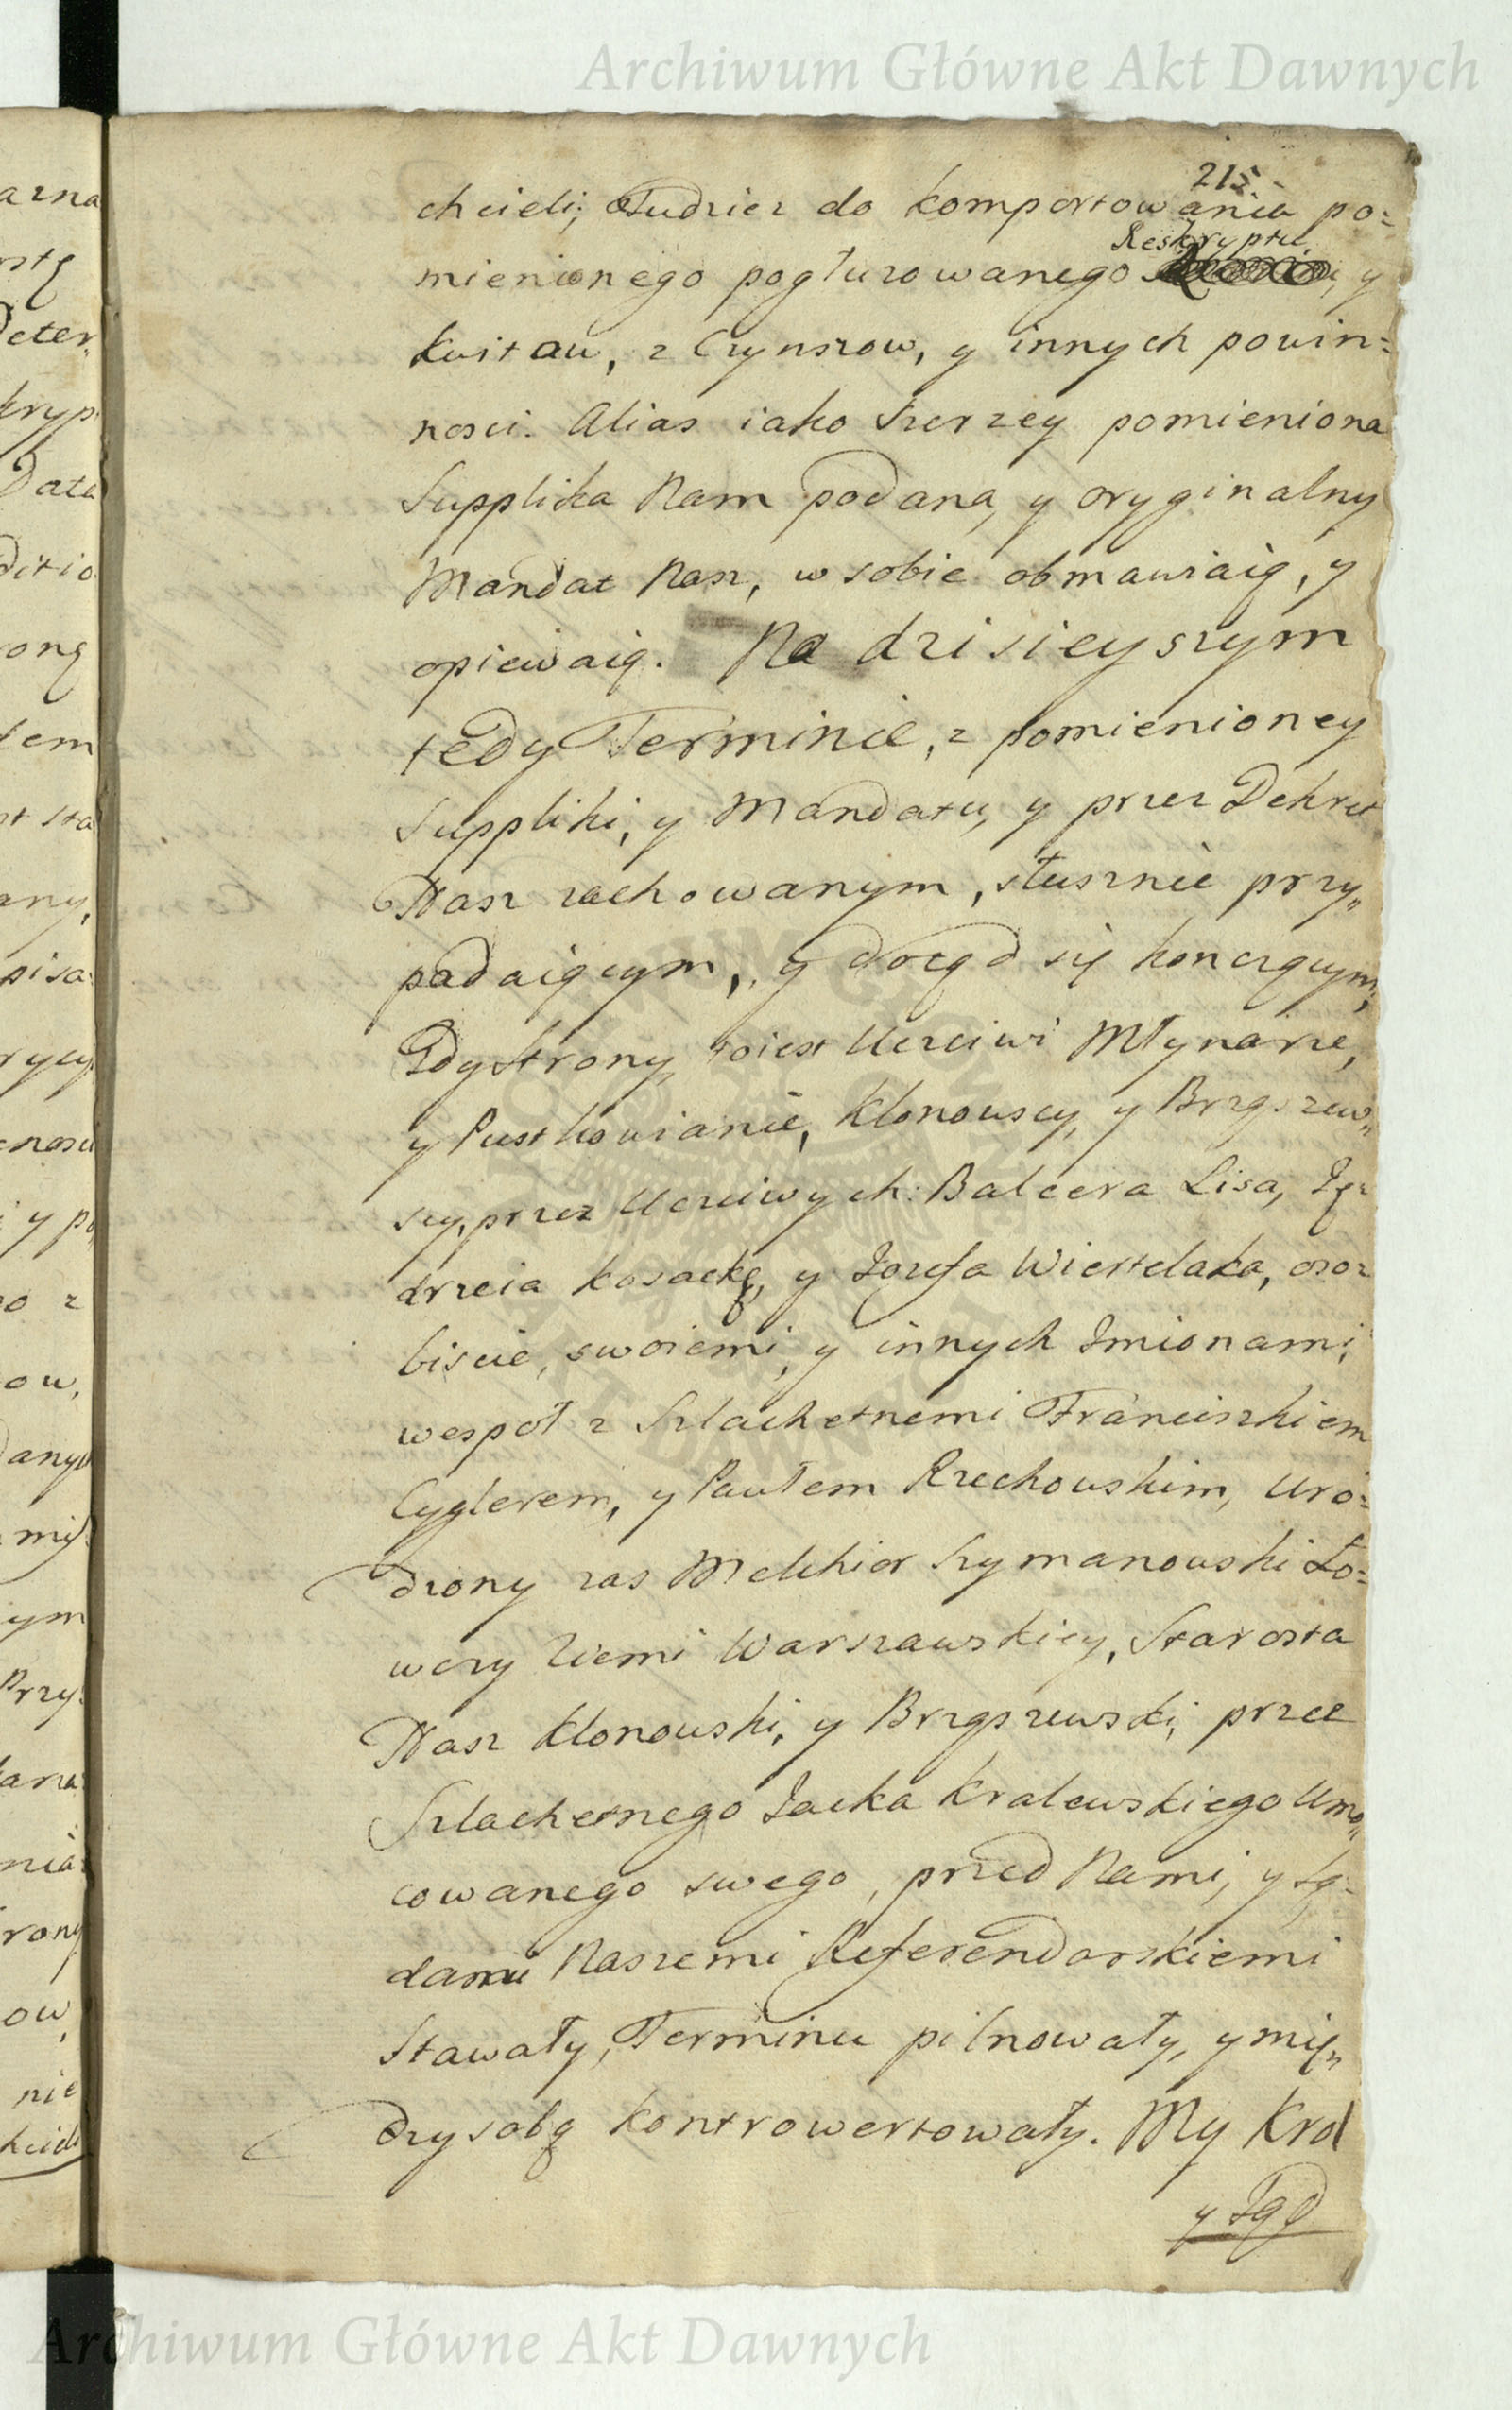 Archiwum Główne Akt Dawnych
215.
chcieli; Tudziez do komportowania po=
Reskryptu
mienionego pogłuzowanego y
kwitow, z Czynszow, y innych powin=
nosci. Alias iako szerzey pomieniona
Supplika Nam podana, y oryginalny
Mandat Nasz, w sobie obmawiaią, y
opiewaią. Na dzisieyszym
tedy Terminie, z pomienioney
Suppliki, y Mandatu, y przez Dekret
Nasz zachowanym, słusznie przy„
padaiącym, y dotąd się konczącym,
Gdy Strony, toiest Uczciwi Młynarze,
y Pustkowianie, Klonowscy, y Brząszew„
scy, przez Uczciwych: Balcera Lisa, Ię=
drzeia Kosackę, y Iozefa Wiertelaka, oso=
biscie, swoiemi, y innych Imionami,
wespoł z Szlachetnemi Franciszkiem
Cyglerem, y Pawłem Rzechowskim, Uro=
dzony zas Melchior Szymanowski Ło=
wczy Ziemi Warszawskiey, Starosta
Nasz Klonowski, y Brząszewski, przez
Szlachetnego Iacka Kralewskiego Umo„
cowanego swego, przed Nami, y Są=
dami Naszemi Referendarskiemi
Stawały, Terminu pilnowały, y mię„
dzy sobą kontrowertowały. My Krol
y Sąd
Archiwum Główne Akt Dawnych